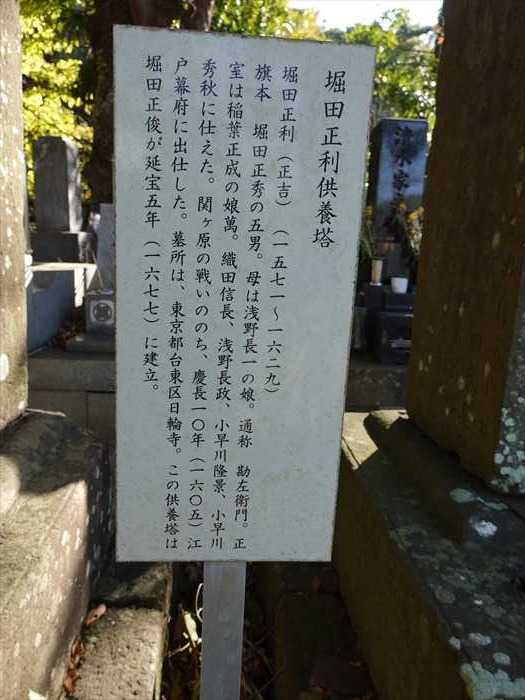 堀田正利供養塔
堀田正利（正吉）（一五七一～一六二九）
旗本　堀田正秀の五男。母は浅野長一の娘。通称　勘左衛門。正
室は稲葉正成の娘萬。織田信長、浅野長政、小早川隆景、小早川
秀秋に仕えた。関ヶ原の戦いののち、慶長一〇年（一六〇五）江
戸幕府に出仕した。墓所は、東京都台東区日輪寺。この供養塔は
堀田正俊が延宝五年（一六七七）に建立。
清水家